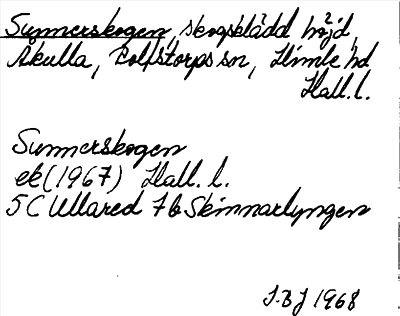 Sunnerskogen, skogsklädd höjd,
Åkulla, Rolfstorps sn, Himle hd
Hall. l.
Sunnerskogen
ek (1967) Hall. l.
5C Ullared 7b Skinnarlyngen
J.B.J 1968